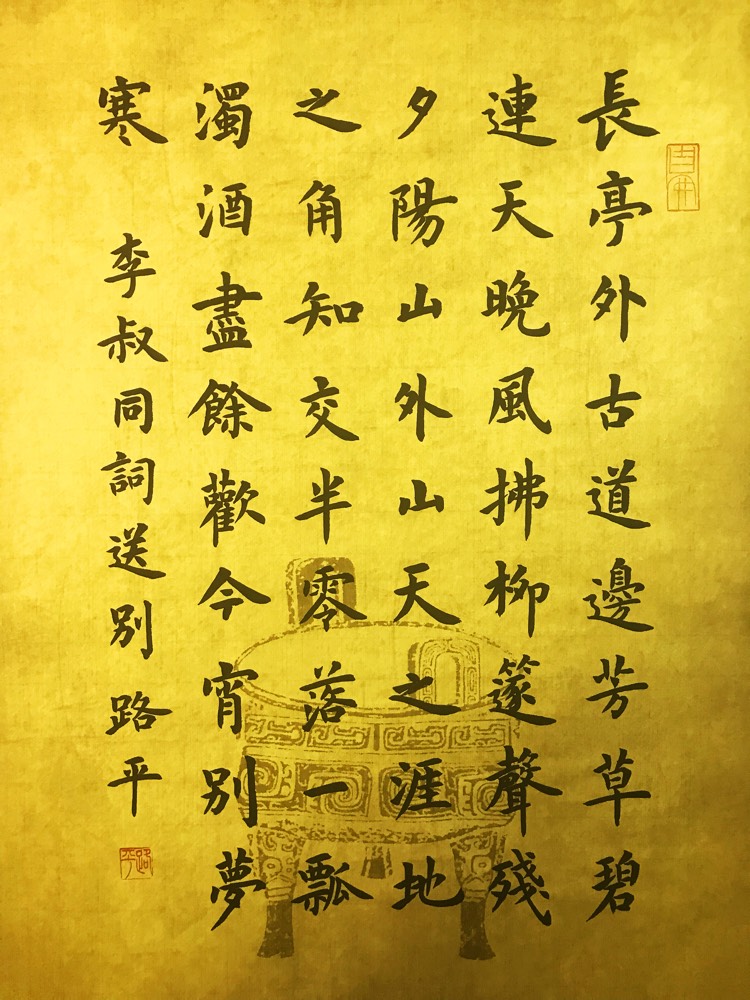 長亭外古道邊芳草碧
連天晚風拂柳篴聲殘
夕陽山外山天之涯地
之角知交半零落一瓢
濁酒盡餘歡今宵別夢
寒
李叔同詞送別路平
路平